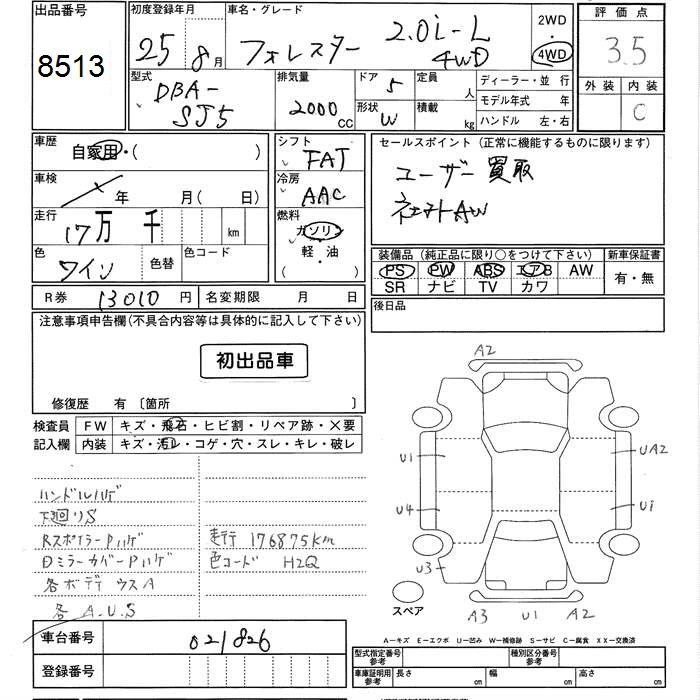 出品番号
8513
初度登録年月
25 8月
車名・グレード
フォレスター 2.0i-L
4WD
2WD
4WD
評価点
3.5
型式
DBA-
SJ5
排気量
2000 CC
ドア 5
形状 W
定員 人
積載 kg
ディーラー・並行
モデル年式 年
ハンドル 左・右
外装 内装
C
車歴
自家用・( )
シフト
FAT
セールスポイント (正常に機能するものに限ります)
ユーザー買取
社外AW
車検
年 月(日)
冷房
AAC
走行
17万 千 km
燃料
ガソリン
軽・油
色
ワイン
色替
色コード
装備品 (純正品に限り○をつけて下さい)
新車保証書
PS PW ABS エアB AW
SR ナビ TV カワ
有・無
R券 13010 円
名変期限 月 日
後日品
注意事項申告欄(不具合内容等は具体的に記入して下さい)
初出品車
修復歴 有 〔箇所 〕
検査員
記入欄
FW キズ・飛石・ヒビ割・リペア跡・×要
内装 キズ・汚レ・コゲ・穴・スレ・キレ・破レ
ハンドルハゲ
下廻りS
RスポイラーPハゲ
走行 176875km
DミラーカバーPハゲ
色コード H2Q
各ボデー ウスA
各 A.U.S
A2
U1
UA2
U4
U1
U3
スペア
A3 U1 A2
車台番号
021826
登録番号
A-キズ E-エクボ U-凹み W-補修跡 S-サビ C-腐食 XX-交換済
型式指定番号
参考
種別区分番号
参考
車庫証明用
参考
長さ cm
幅 cm
高さ cm